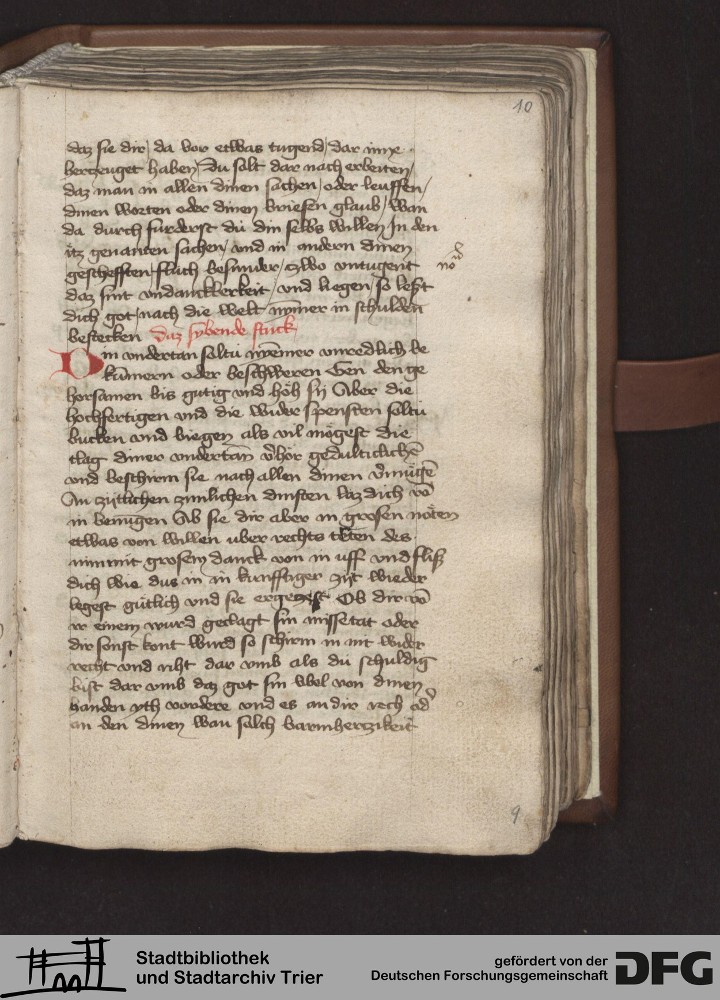 10
daz sie dir / da vor etwas tugend / dar inne
berzeuget haben / Du solt dar nach erbeiten /
daz man in allen dinen sachen / oder leuffen /
dinen worten oder dinen briefen glaub / Wan
da durch furderst du din selbs willen In den
itz genanten sachen / vnd in andern dinen
geschefften / fluch besunder / zwo vntugent
daz sint vndanckberkeit / vnd liegen / so lest
dich got / nach die welt nymer in schulden
bestecken daz sybende stuck
Din vndertan soltu nyemer vnredlich be
kumern oder beschweren Gen den ge
horsamen bis gutig vnd hoh sij Aber die
hochfertigen vnd die wider spensten soltu
bucken vnd biegen als vil mogest die
clag diner vndertan v̄hor gedulticlichē
vnd beschirm sie nach allen dinen v̄mugē
An zytlichen zimlichen dinsten laz dich vō
in benugen Ab sie dir aber in grosen noten
etwas von willen uber rechts teten des
nim mit grosem danck von in uff vnd fliß
dich wie dus in in kunfftiger zijt wieder
legest gutlich vnd sie ergezest Ob dir vō
einem wurd geclagt sin missetat oder
dir sonst kont wurd so schirm in nit wider
recht vnd riht dar vmb als du schuldig
bist dar vmb daz got sin vbel von dinen
handen vordere vnd es an dir rech od̄
an den dinen wan solch barmherzikeit
9
Stadtbibliothek
und Stadtarchiv Trier
gefördert von der
Deutschen Forschungsgemeinschaft
DFG